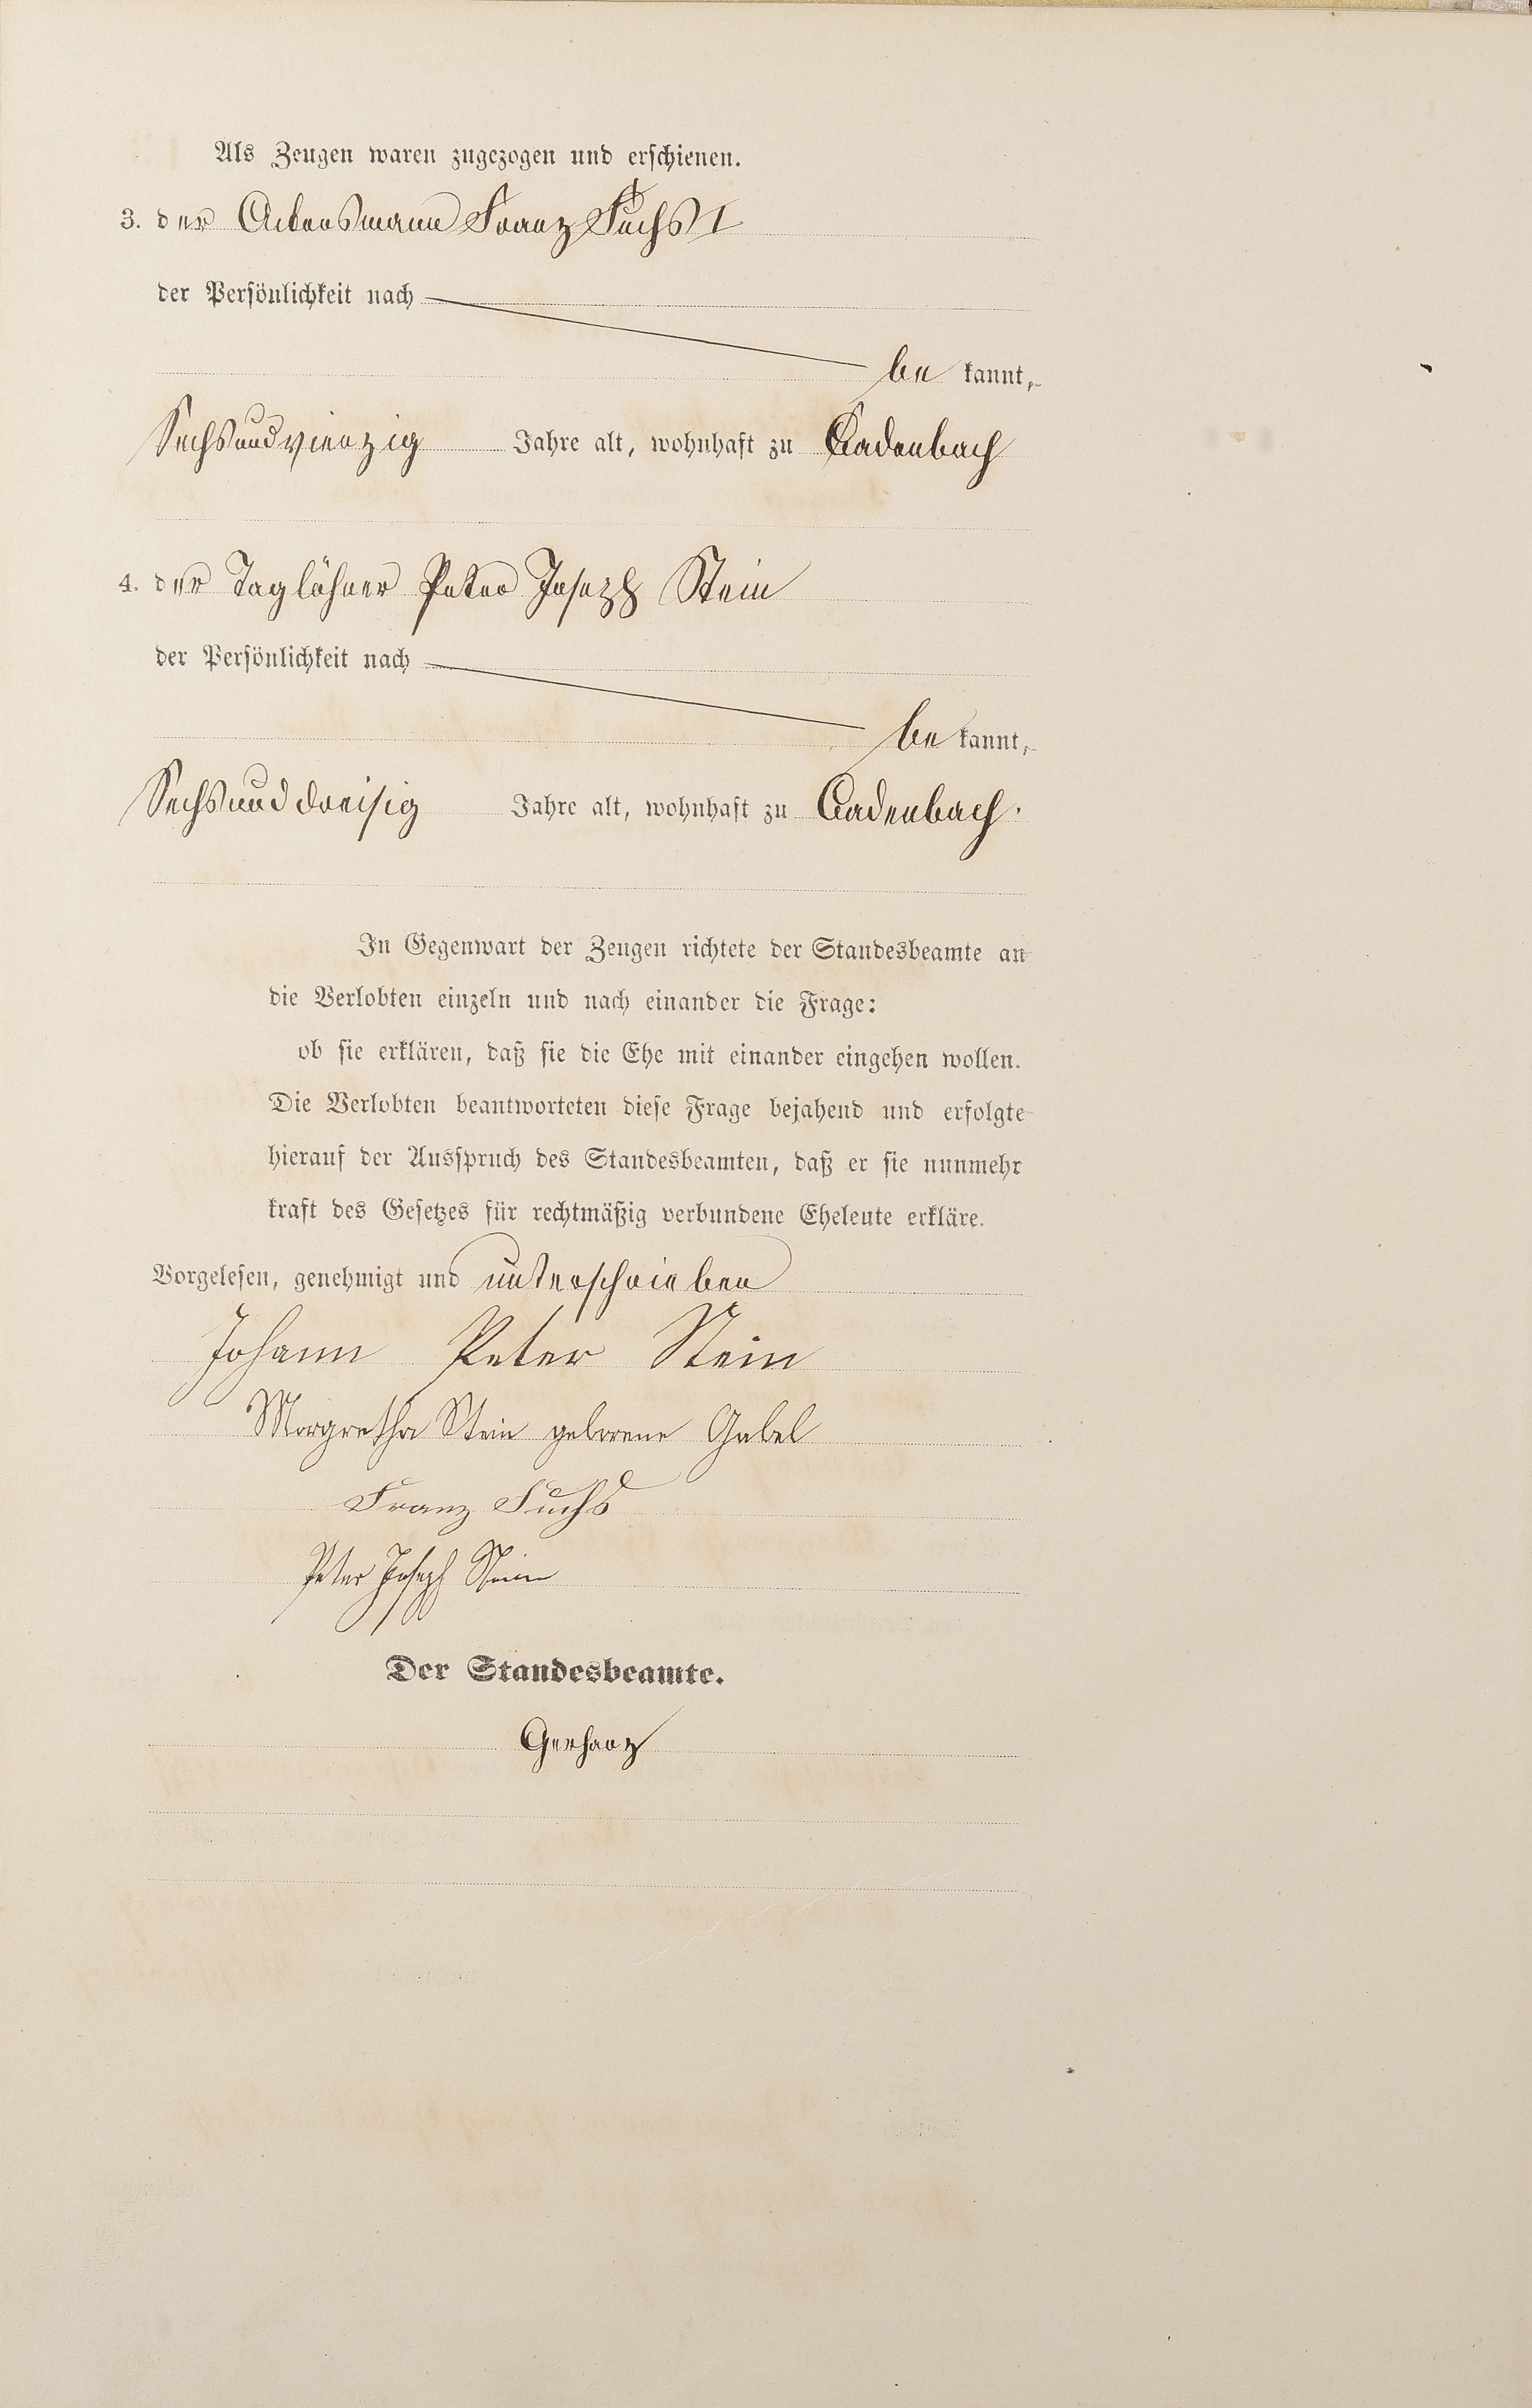 Als Zeugen waren zugezogen und erschienen.
3. der Ackersmann Franz Fuchs I
der Persönlichkeit nach
be kannt,
Sechsundvierzig Jahre alt, wohnhaft zu Cadenbach
4. der Taglöhner Peter Joseph Stein
der Persönlichkeit nach
be kannt,
Sechsunddreisig Jahre alt, wohnhaft zu Cadenbach.
In Gegenwart der Zeugen richtete der Standesbeamte an
die Verlobten einzeln und nach einander die Frage:
ob sie erklären, daß sie die Ehe mit einander eingehen wollen.
Die Verlobten beantworteten diese Frage bejahend und erfolgte
hierauf der Ausspruch des Standesbeamten, daß er sie nunmehr
kraft des Gesetzes für rechtmäßig verbundene Eheleute erkläre.
Vorgelesen, genehmigt und unterschrieben
Johann Peter Stein
Margretha Stein geborene Gabel
Franz Fuchs
Peter Joseph Stein
Der Standesbeamte.
Gerharz